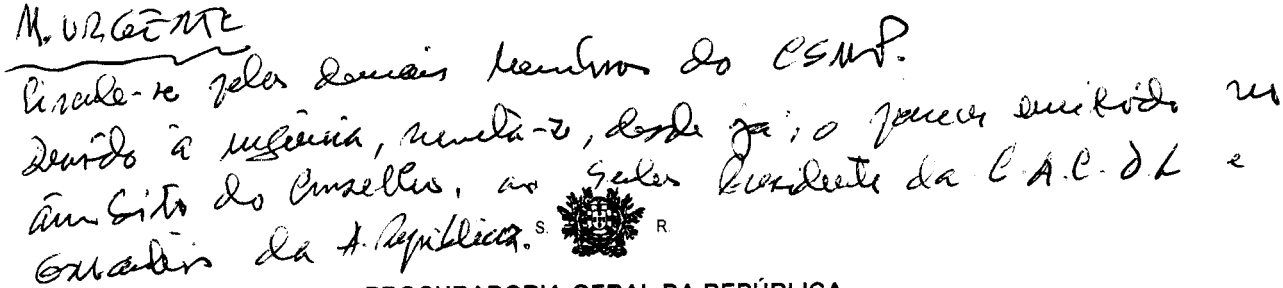 M. URGENTE
Circule-se pelos demais membros do CSMP.
Devido à urgência, remeta-se, desde já, o parecer emitido no
âmbito do Conselho, ao Senhor Presidente da C.A.C.D.L e
da A. República.
S. R.
PROCURADORIA-GERAL DA REPÚBLICA